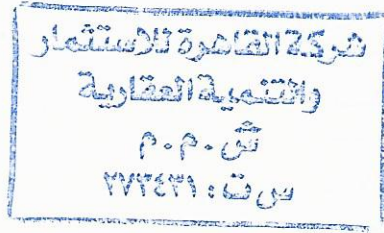 شركة القاهرة للاستثمار
والتنمية العقارية
ش.م.م
س ت: ٢٧٣٤٣١